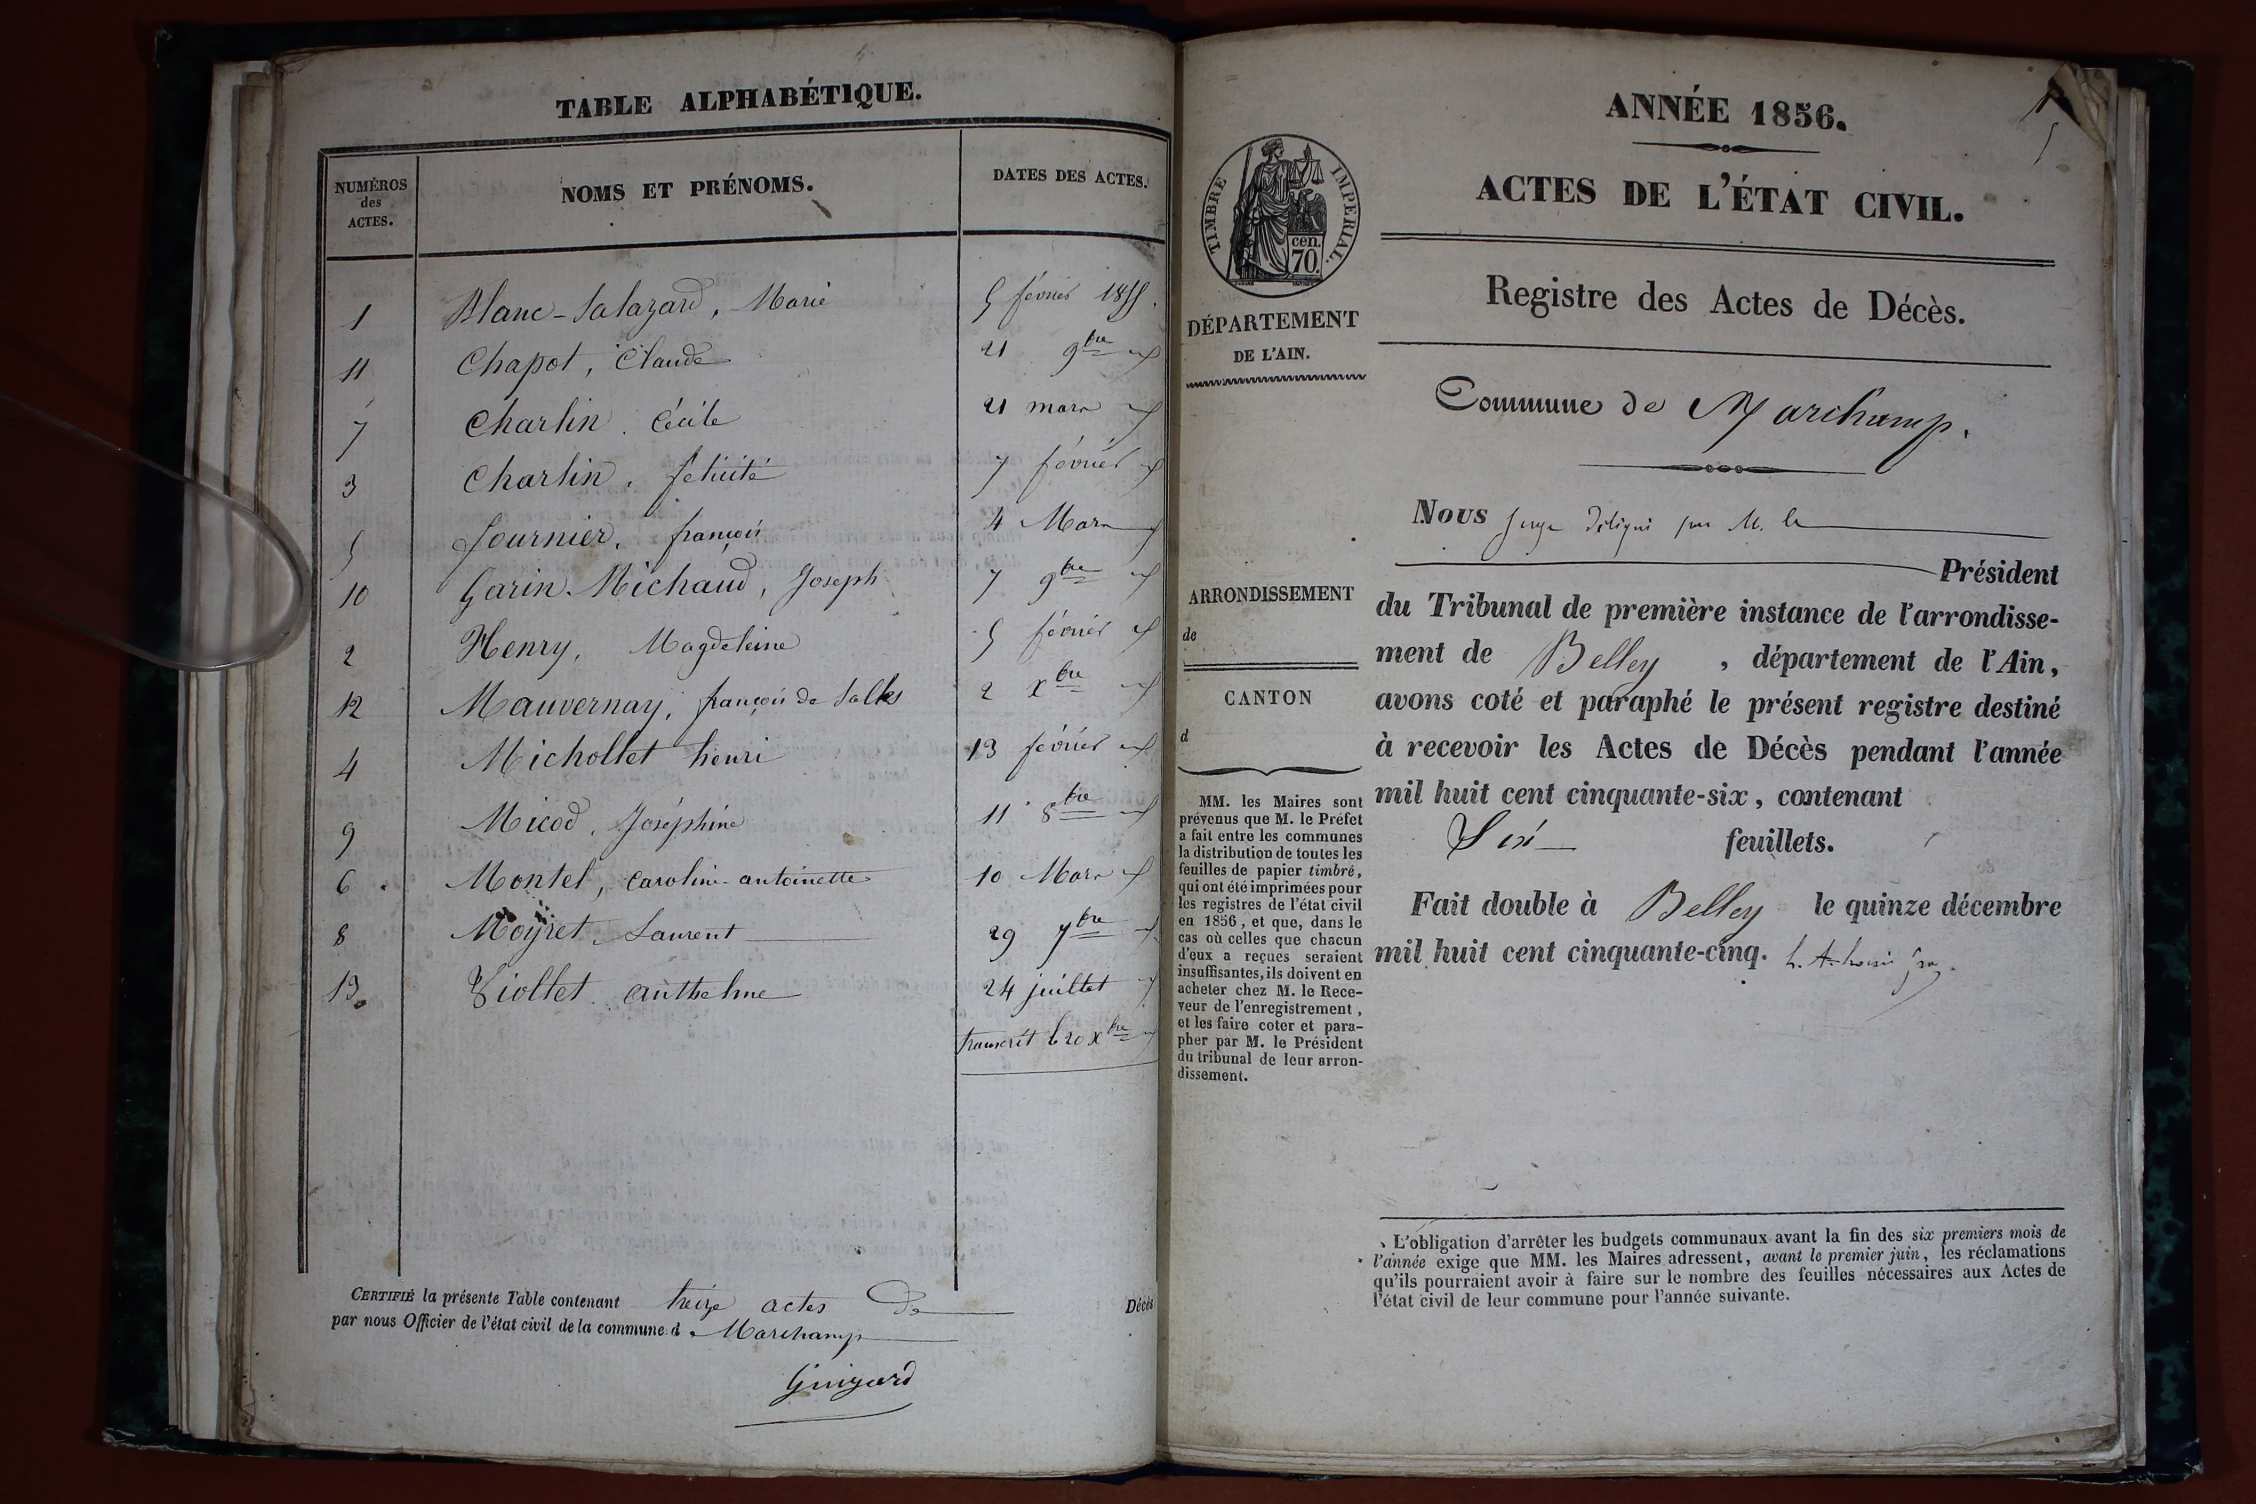 TABLE ALPHABÉTIQUE.
NUMÉROS des ACTES. NOMS ET PRÉNOMS. DATES DES ACTES.
1 Blanc-Salazard, Marie 5 février 1855.
11 Chapot, Claude 21 9bre
7 Charlin. Cécile 21 mars
3 Charlin, félicité 7 février
5 fournier, françois 4 Mars
10 Garin-Michaud, Joseph 7 9bre
2 Henry, Magdeleine 5 février
12 Mauvernay, françois de Salles 2 Xbre
4 Michollet henri 13 février
9 Micod, Joséphine 11 8bre
6. Montel, caroline-antoinette 10 Mars
8 Moyret, Laurent 29 7bre
13. Viollet anthelme 24 juillet
transcrit le 20 Xbre
CERTIFIÉ la présente Table contenant treize actes de Décès
par nous Officier de l'état civil de la commune d Marchamp
Guigard
ANNÉE 1856.
ACTES DE L'ÉTAT CIVIL.
TIMBRE IMPERIAL.
cen.
70.
Registre des Actes de Décès.
DÉPARTEMENT
DE L'AIN.
Commune de Marchamp.
Nous juge délégué par M. le
Président
ARRONDISSEMENT
de
CANTON
d
du Tribunal de première instance de l'arrondisse-
ment de Belley, département de l'Ain,
avons coté et paraphé le présent registre destiné
à recevoir les Actes de Décès pendant l'année
mil huit cent cinquante-six, contenant
Six feuillets.
Fait double à Belley le quinze décembre
mil huit cent cinquante-cinq.
MM. les Maires sont
prévenus que M. le Préfet
a fait entre les communes
la distribution de toutes les
feuilles de papier timbré,
qui ont été imprimées pour
les registres de l'état civil
en 1856, et que, dans le
cas où celles que chacun
d'eux a reçues seraient
insuffisantes, ils doivent en
acheter chez M. le Rece-
veur de l'enregistrement,
et les faire coter et para-
pher par M. le Président
du tribunal de leur arron-
dissement.
L'obligation d'arrêter les budgets communaux avant la fin des six premiers mois de
l'année exige que MM. les Maires adressent, avant le premier juin, les réclamations
qu'ils pourraient avoir à faire sur le nombre des feuilles nécessaires aux Actes de
l'état civil de leur commune pour l'année suivante.